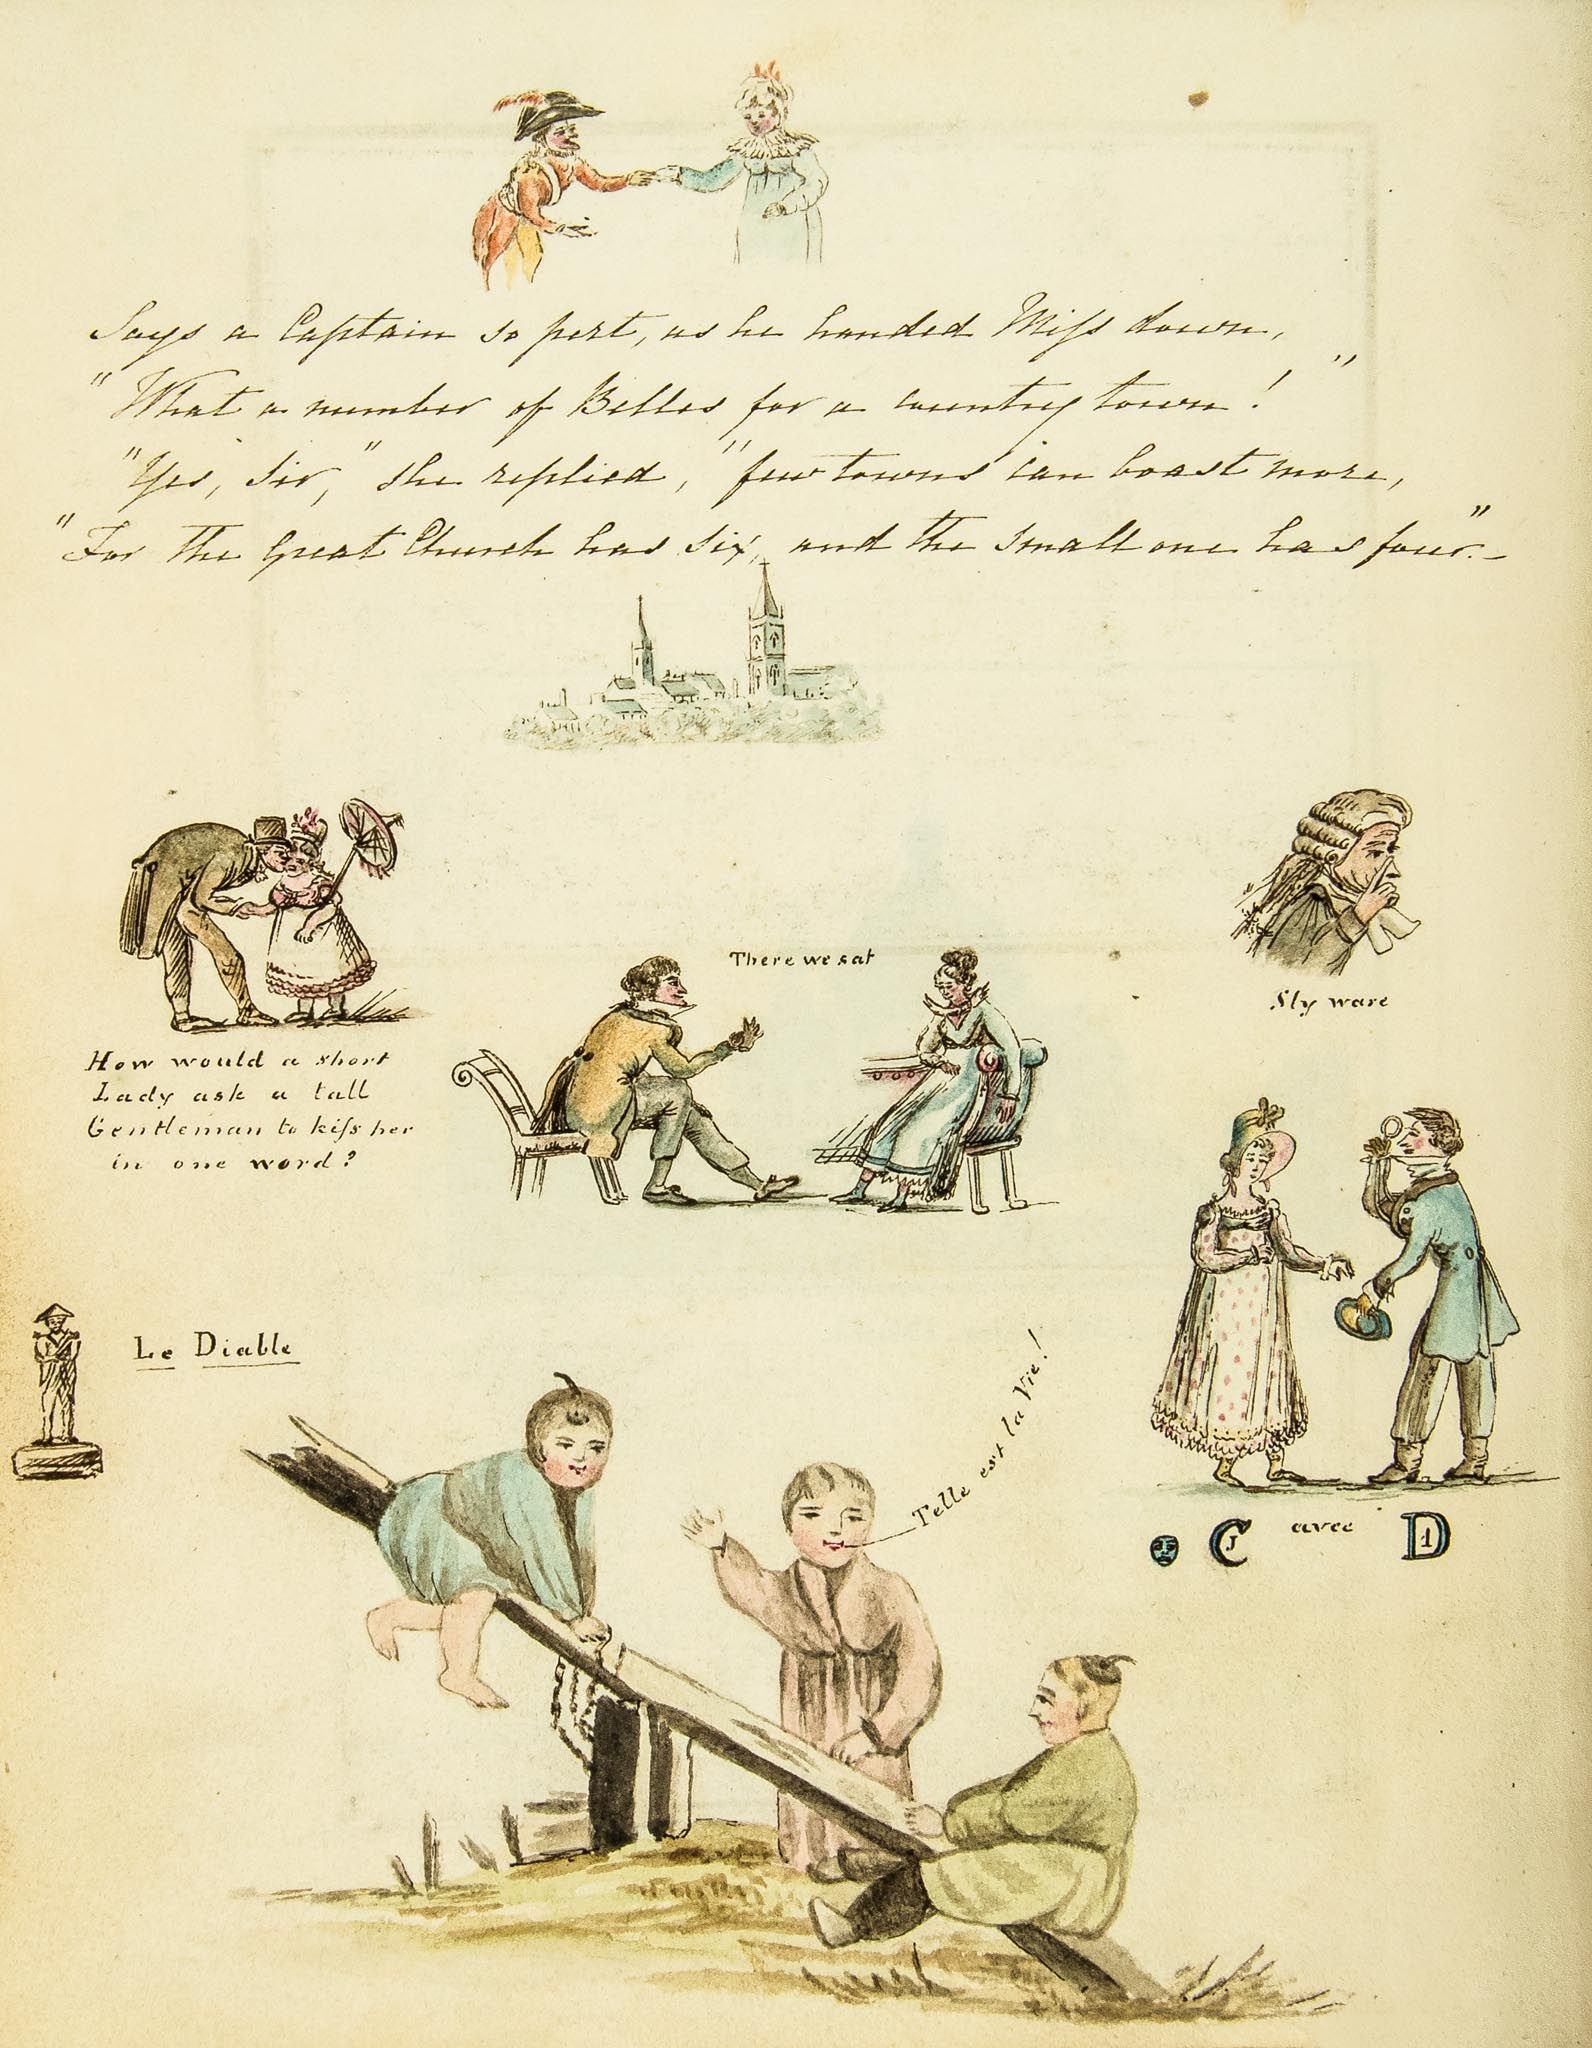 Says a Captain so pert, as he handed Miſs down,
"What a number of Belles for a country town!"
"Yes, Sir," she replied, "few towns can boast more,
"For the Great Church has six, and the small one has four."—
There we sat
Sly ware
How would a short
Lady ask a tall
Gentleman to kiſs her
in one word?
Le Diable
Telle est la Vie!
C J avec D 1